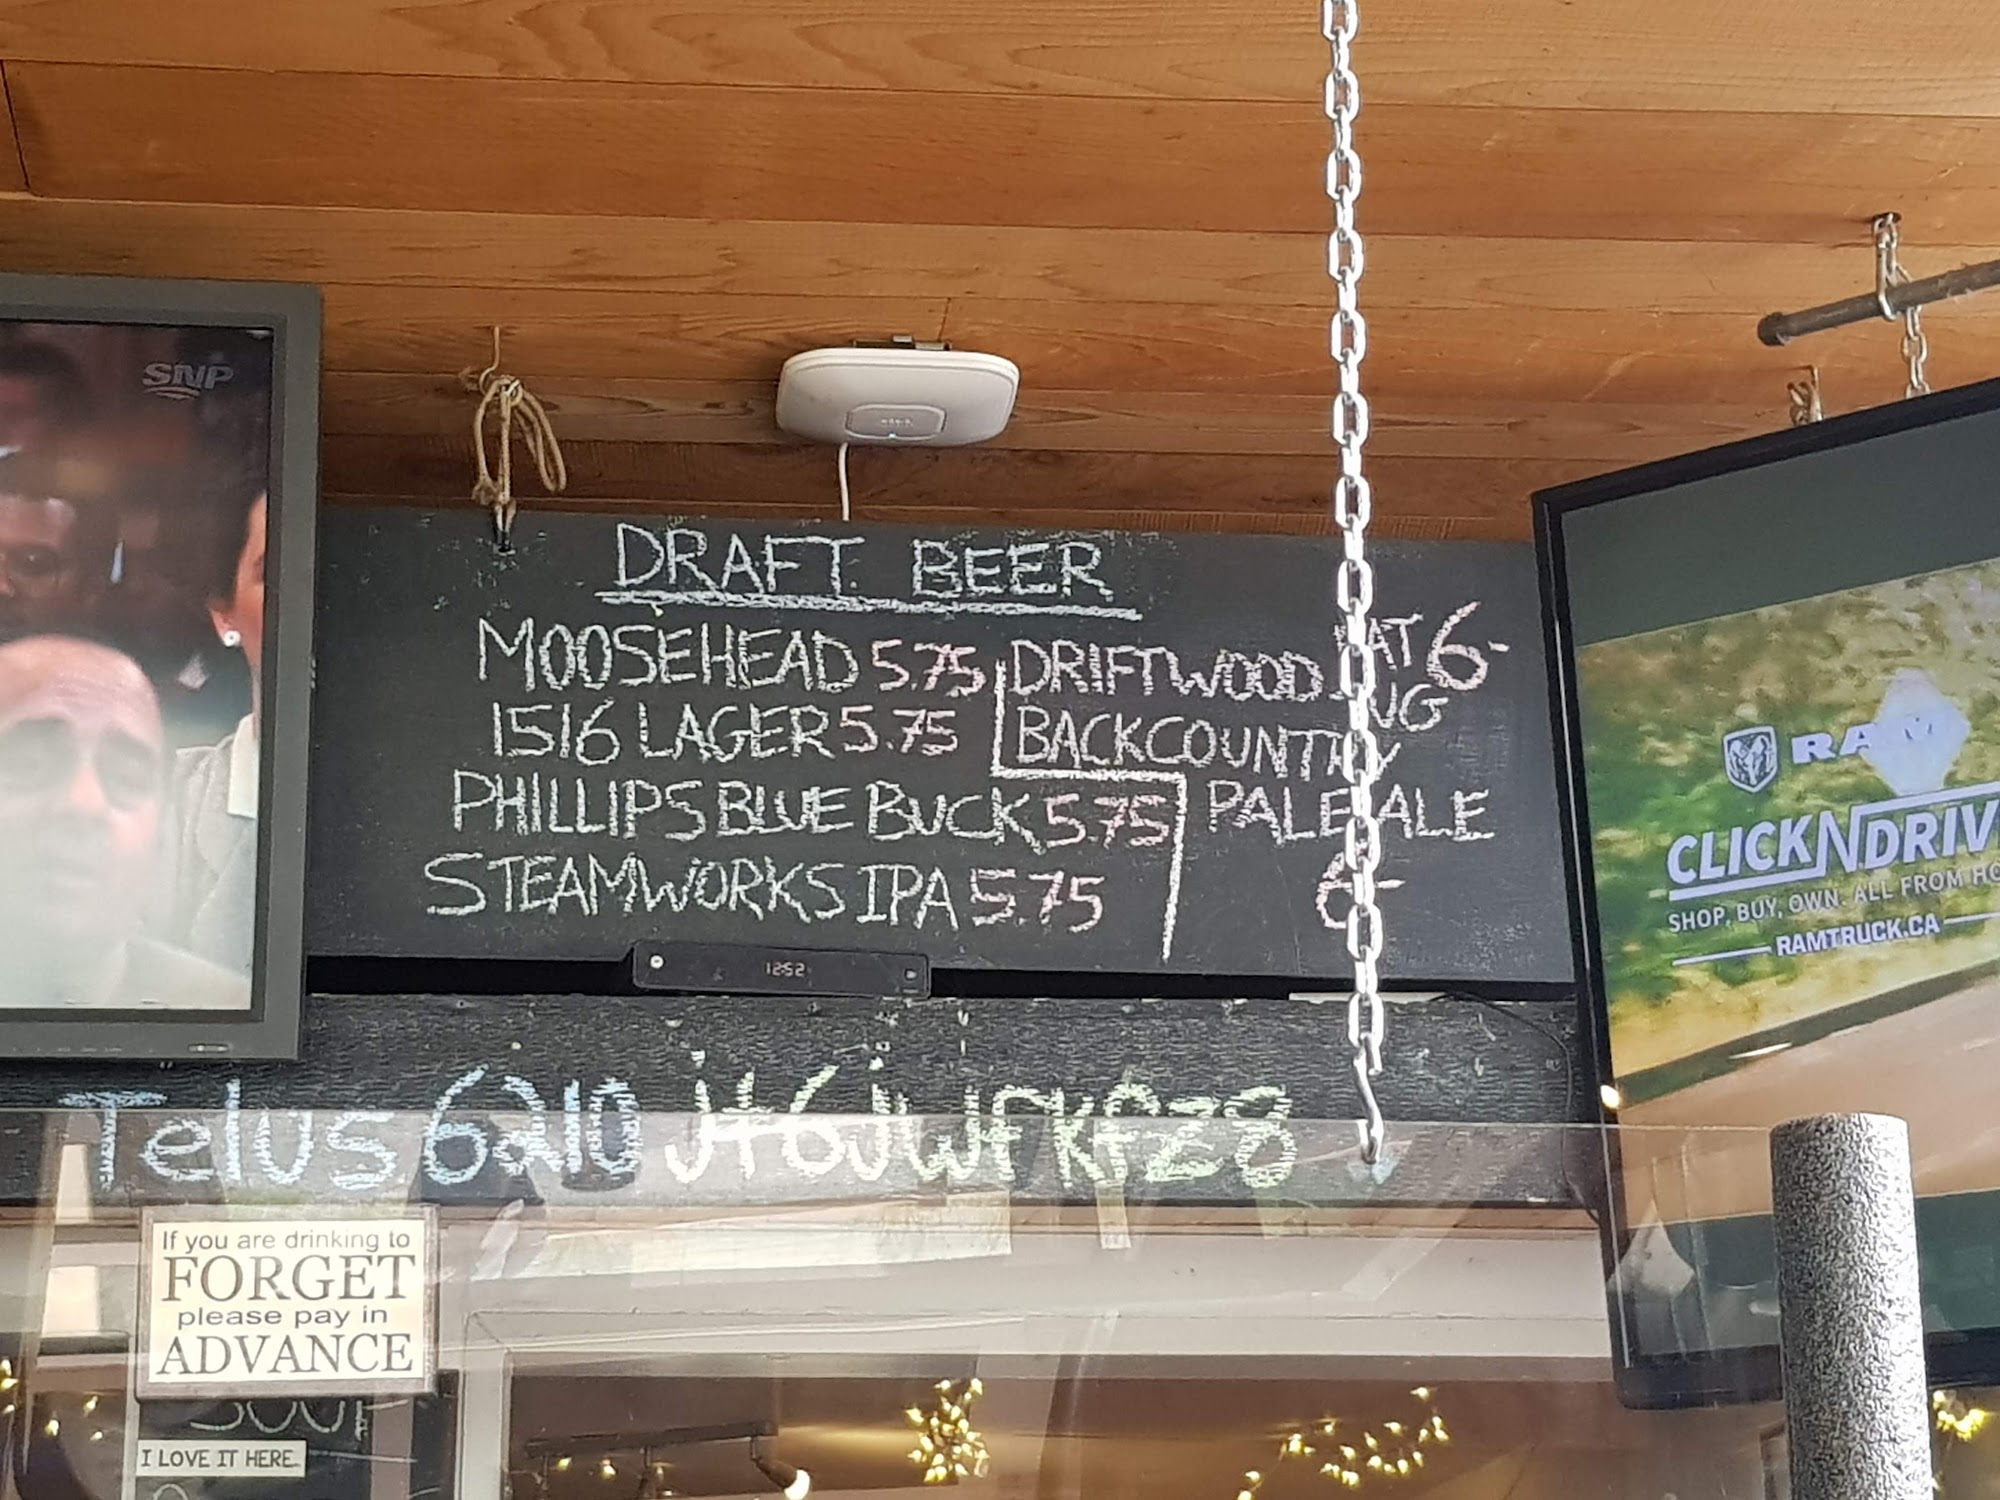 SNP
DRAFT BEER
MOOSEHEAD 5.75
1516 LAGER 5.75
PHILLIPS BLUE BUCK 5.75
STEAMWORKS IPA 5.75
DRIFTWOOD 6-
BACKCOUNTRY
PALE ALE
6-
12:52
RAM
CLICKNDRIV
SHOP, BUY, OWN. ALL FROM HO
RAMTRUCK.CA
Telus6210 jt6jwFKFZ8
If you are drinking to
FORGET
please pay in
ADVANCE
SOUP
I LOVE IT HERE.